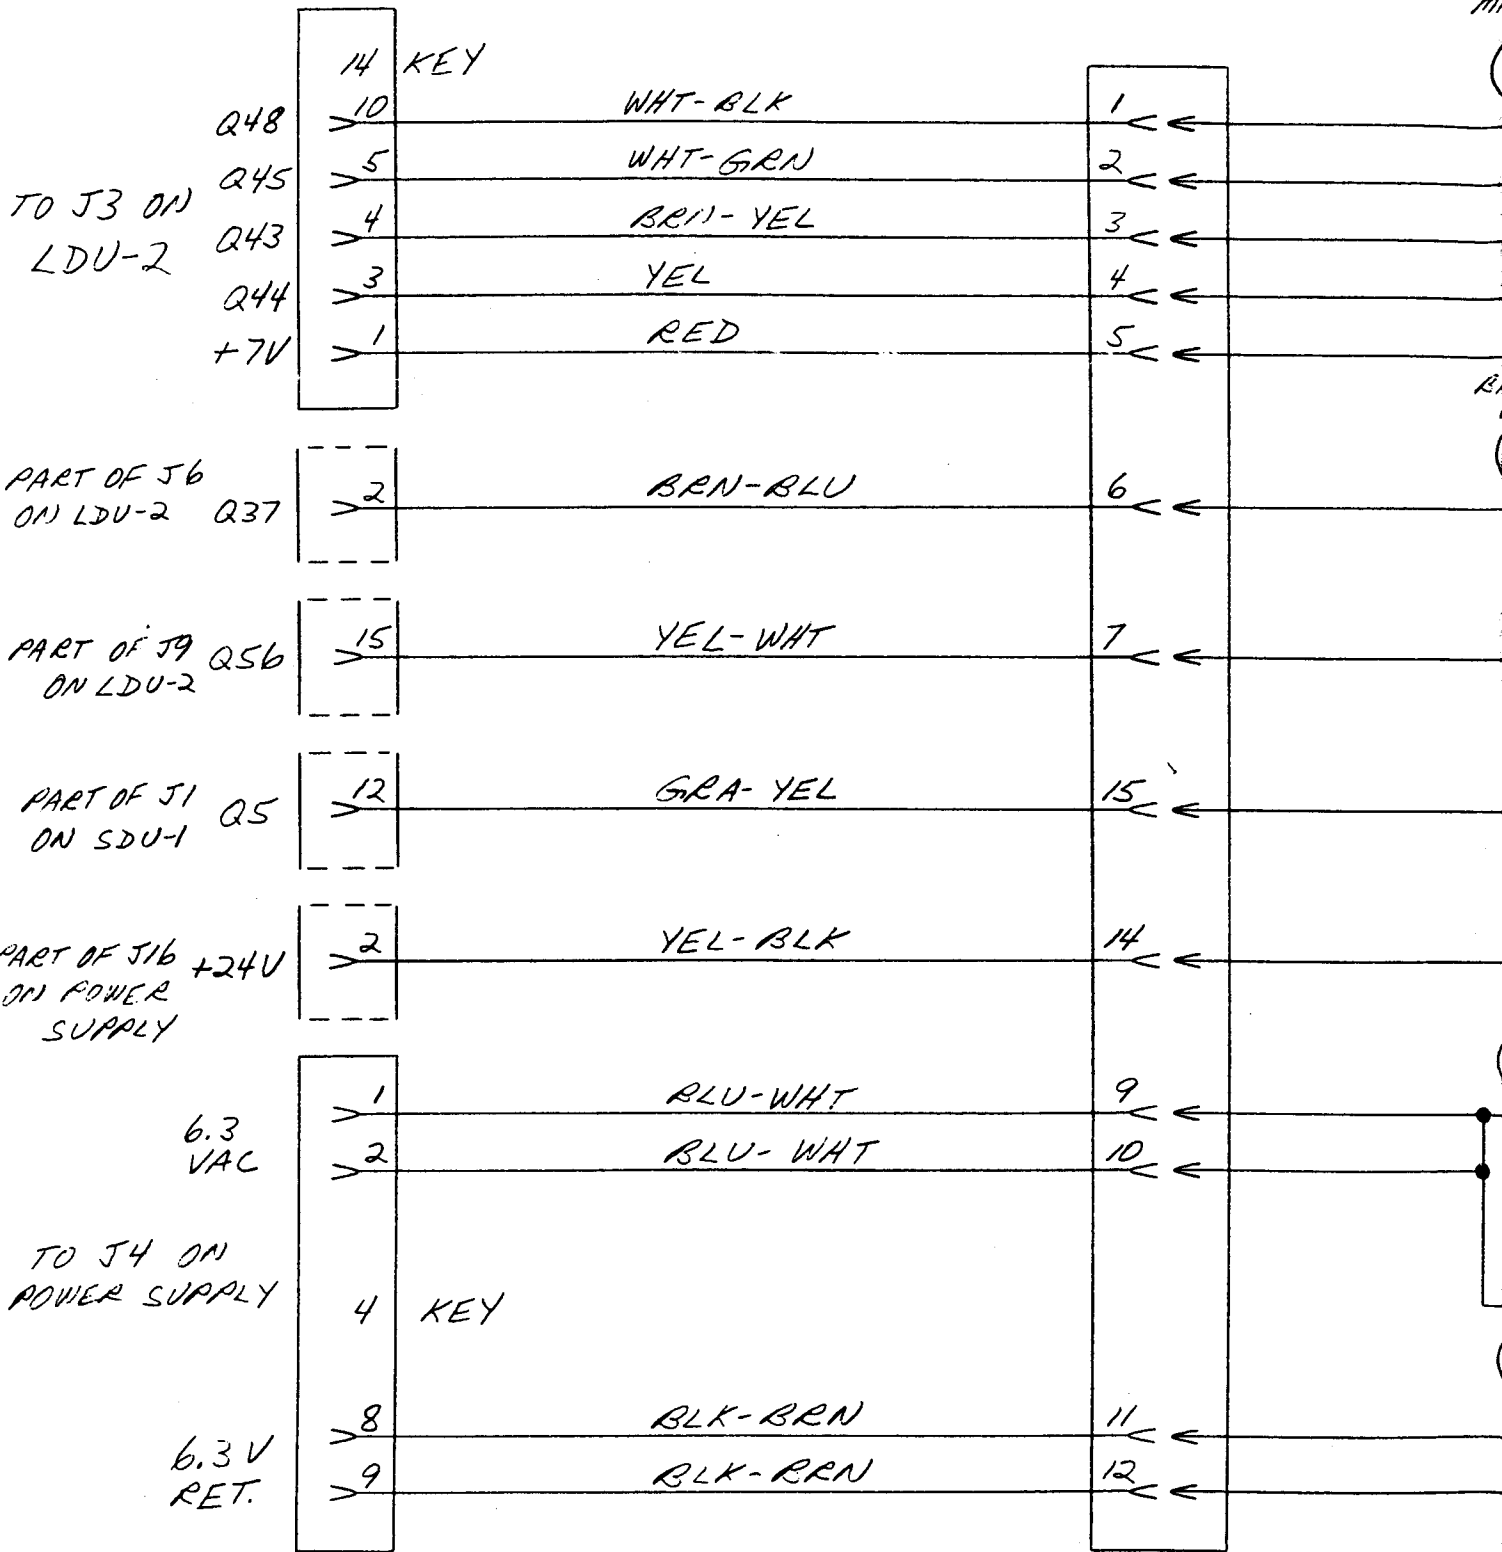 14 KEY
Q48 10 WHT-BLK 1
Q45 5 WHT-GRN 2
TO J3 ON
LDU-2
Q43 4 BRN-YEL 3
Q44 3 YEL 4
+7V 1 RED 5
PART OF J6
ON LDU-2 Q37 2 BRN-BLU 6
PART OF J9
ON LDU-2
Q56 15 YEL-WHT 7
PART OF J1
ON SDU-1
Q5 12 GRA-YEL 15
PART OF J16
ON POWER
SUPPLY
+24V 2 YEL-BLK 14
6.3
VAC
1 BLU-WHT 9
2 BLU-WHT 10
TO J4 ON
POWER SUPPLY
4 KEY
6.3V
RET.
8 BLK-BRN 11
9 BLK-BRN 12